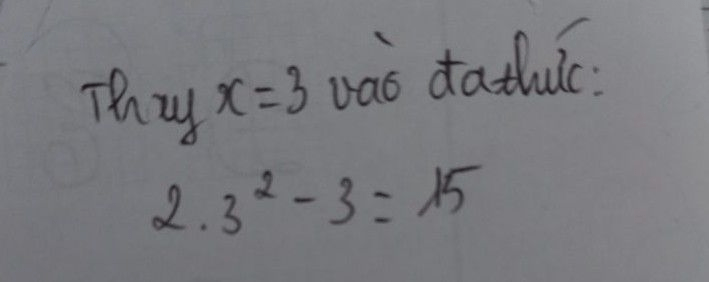 Thay x = 3 vào đa thức:
2 . 3² - 3 = 15